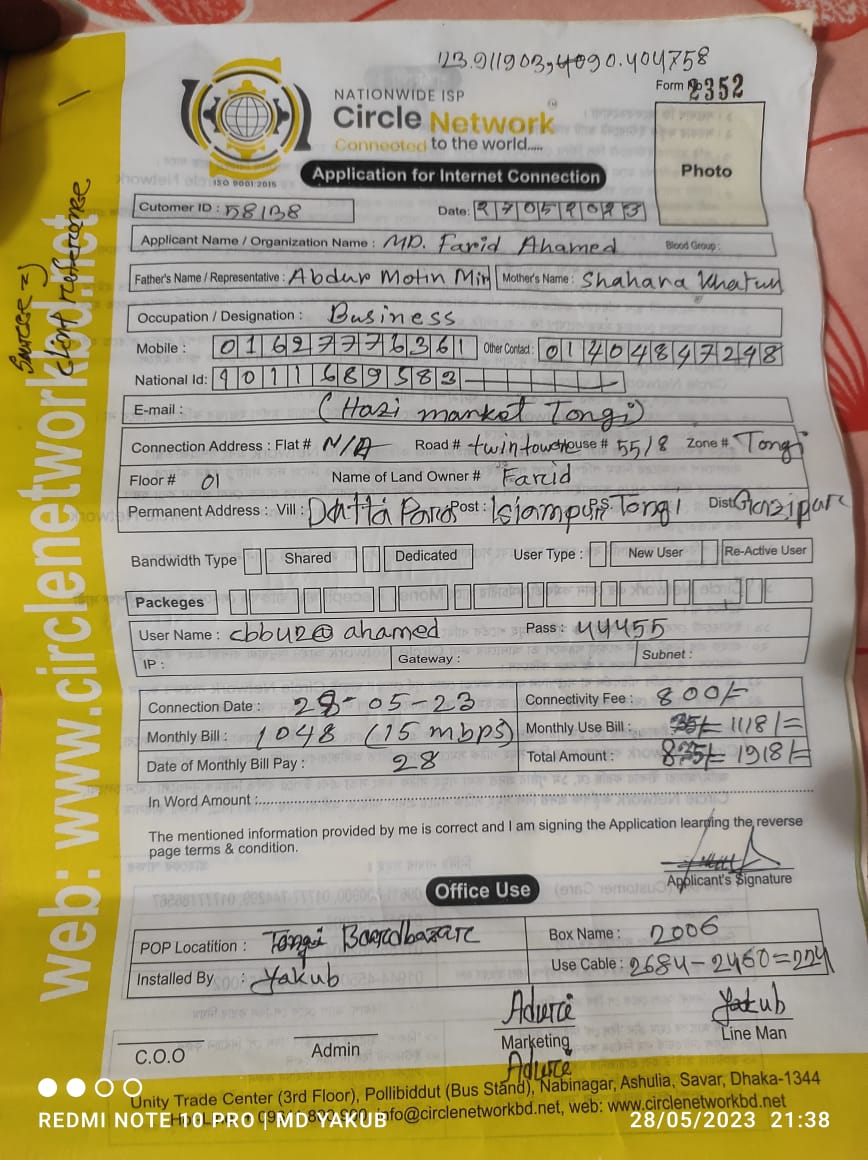 123.911903, 90.404758
NATIONWIDE ISP
Form No 2352
Circle Network
Connected to the world.....
ISO 9001:2015
Application for Internet Connection
Photo
Cutomer ID : 58138 Date: 27052023
Applicant Name / Organization Name : MD. Farid Ahamed Blood Group :
Father's Name / Representative : Abdur Motin Mir Mother's Name : Shahana Khatun
Occupation / Designation : Business
Mobile : 01627776361 Other Contact : 01404847298
National Id: 1011689583
E-mail : (Hazi market Tongi)
Connection Address : Flat # N/A Road # twintower House # 55/8 Zone # Tongi
Floor # 01 Name of Land Owner # Farid
Permanent Address : Vill : Datta Para Post : Islampur P.S. Tongi Dist: Gazipur
Bandwidth Type Shared Dedicated User Type : New User Re-Active User
Packeges
User Name : cbbu2@ahamed Pass : 44455
IP : Gateway : Subnet :
Connection Date : 28-05-23 Connectivity Fee : 800/-
Monthly Bill : 1048 (15 mbps) Monthly Use Bill : 35/= 1118/=
Date of Monthly Bill Pay : 28 Total Amount : 835/= 1918/=
In Word Amount :
The mentioned information provided by me is correct and I am signing the Application learning the reverse
page terms & condition.
Applicant's Signature
Office Use
POP Locatition : Tongi Boardbazare Box Name : 2006
Installed By : Yakub Use Cable : 2684-2460=224
Yakub
C.O.O Admin Marketing Line Man
Unity Trade Center (3rd Floor), Pollibiddut (Bus Stand), Nabinagar, Ashulia, Savar, Dhaka-1344
info@circlenetworkbd.net, web: www.circlenetworkbd.net
web: www.circlenetworkbd.net
Source =>
client reference
REDMI NOTE 10 PRO | MD YAKUB
28/05/2023 21:38